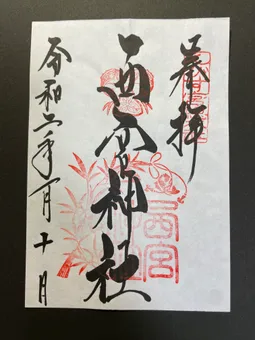 奉拝
西宮神社
西宮
令和二年一月十日